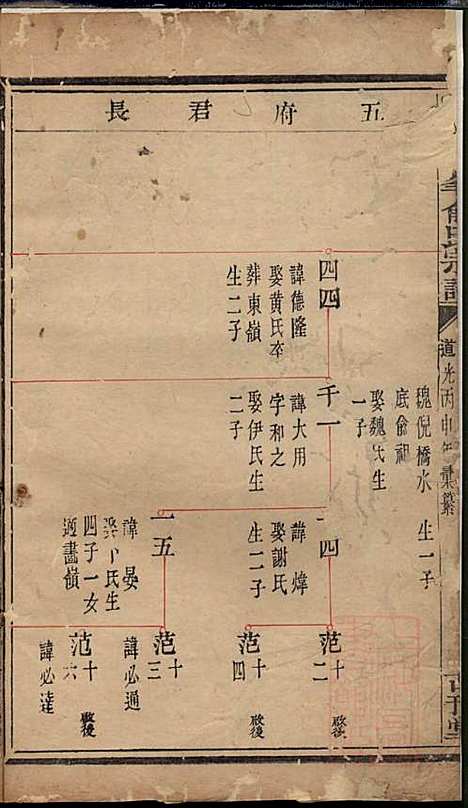 五府君長
道光丙申年彙纂
魏倪橋水 生一子
底俞祖
娶魏氏生
一子
四四
諱德隆
娶黄氏卒
葬東嶺
生二子
千一
諱大用
字和之
娶伊氏生
二子
十四
諱煒
娶謝氏
生二子
一五
諱晏
娶卜氏生
四子一女
適畫嶺
范十二 啟後
范十四 啟後
范十三
諱必通
范十六 啟後
諱必達